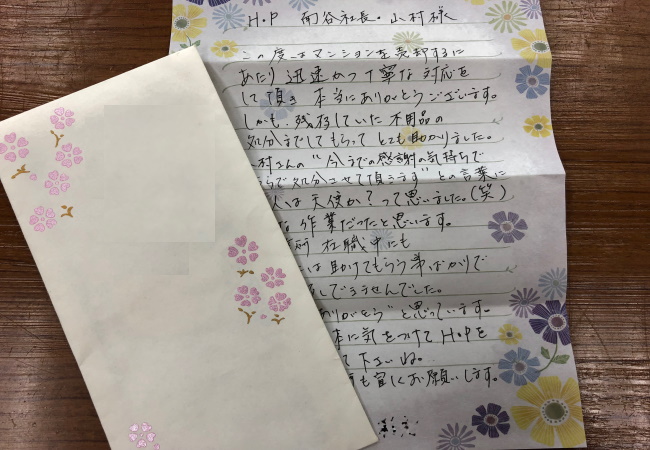 H・P 南谷社長。小村様
この度はマンションを売却するに
あたり 迅速かつ丁寧な対応を
して頂き 本当にありがとうございます。
しかも、残存していた不用品の
処分までしてもらって とても助かりました。
村さんの "今までの感謝の気持ちで
らで処分させて頂きます" との言葉に
人は天使か？って思いました。(笑)
な作業だったと思います。
所 在職中にも
は助けてもらう事ばかりで
してできませんでした。
りがとう" と思っています。
体に気をつけて H・Pを
て下さいね。
も宜しくお願いします。